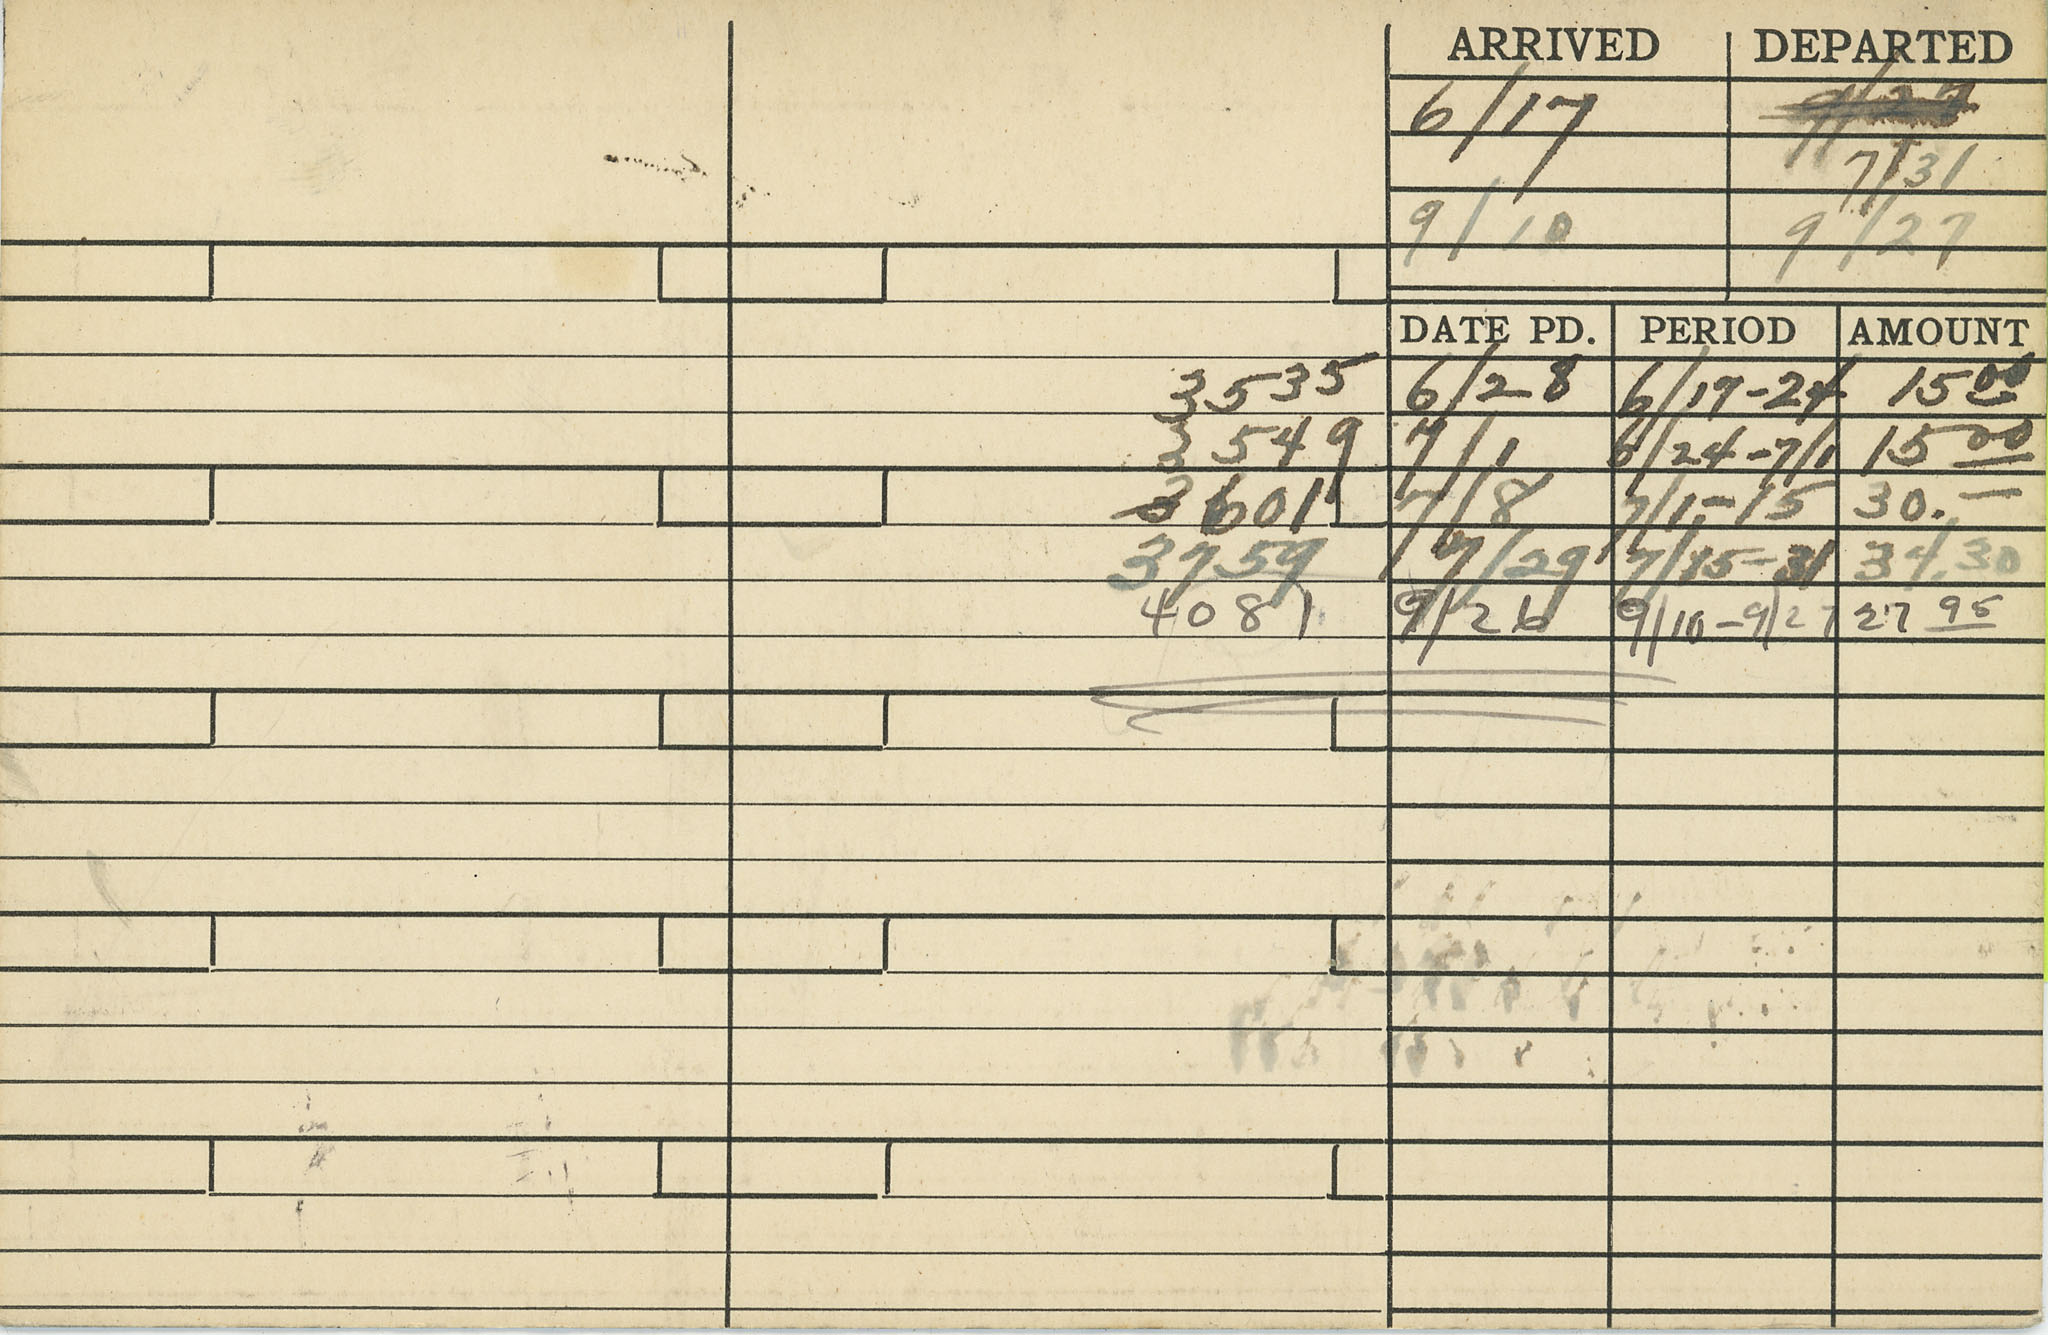 ARRIVED DEPARTED
6/17 9/27
7/31
9/10 9/27
DATE PD. PERIOD AMOUNT
3535 6/28 6/19-24 15 00
3549 7/1 6/24-7/1 15 00
3601 7/8 7/1-15 30.—
3759 7/29 7/15-31 34.30
4081 9/26 9/10-9/27 27 95